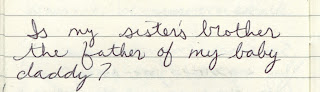 Is my sister's brother
the father of my baby
daddy?